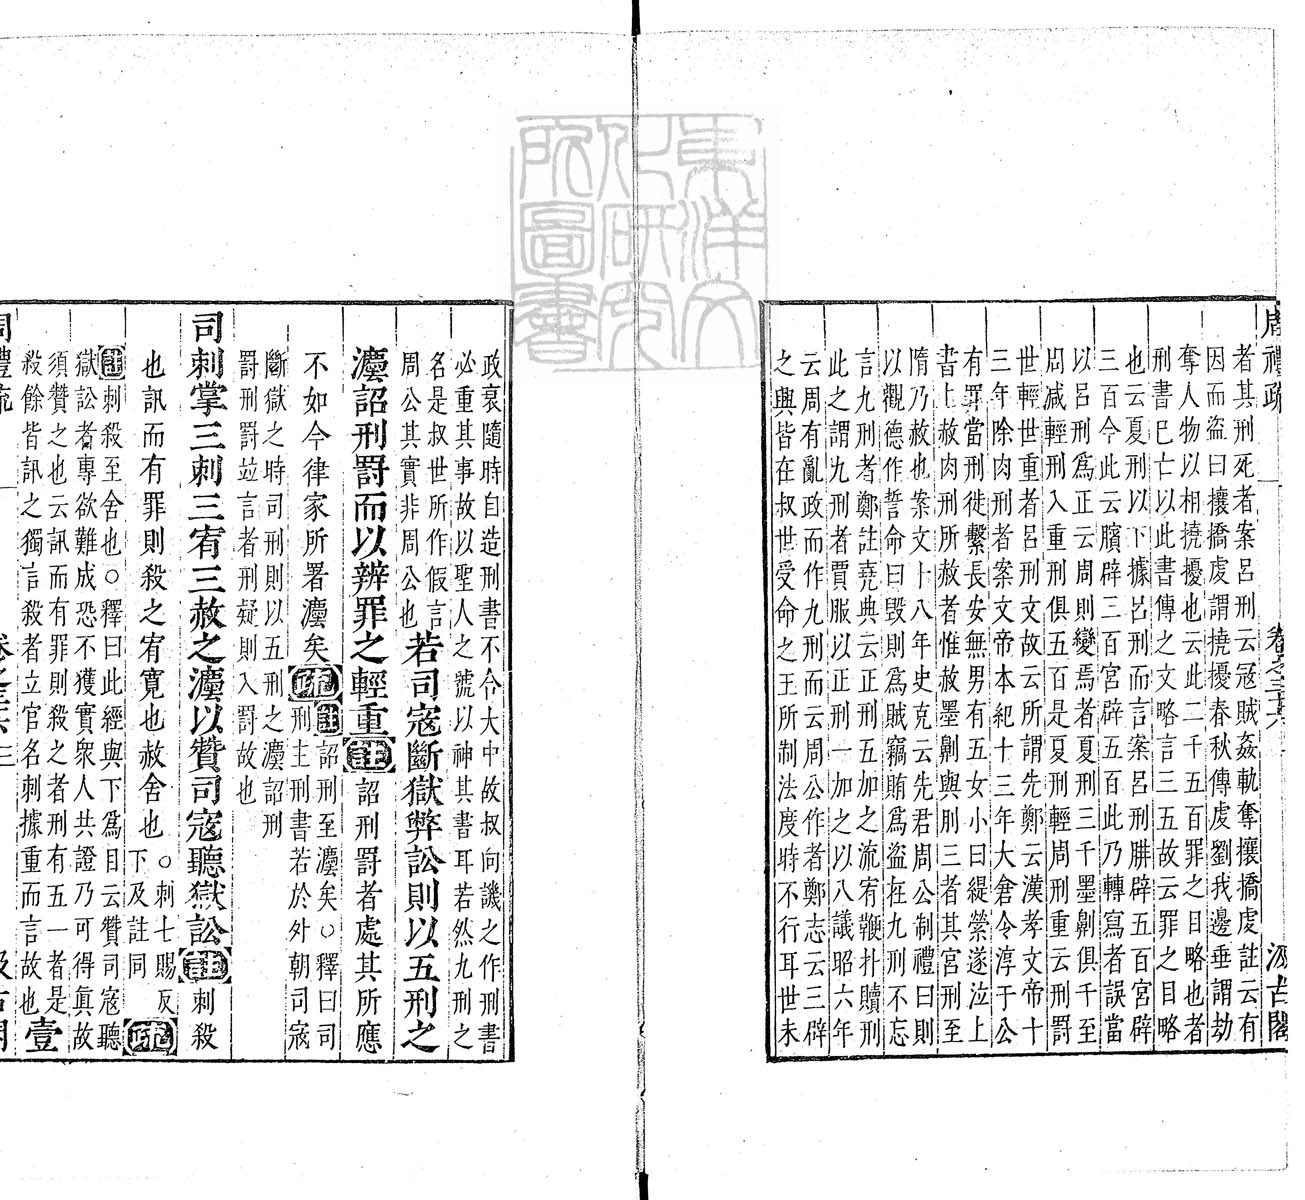 周禮疏 卷之三十六 二 汲古閣
者其刑死者案呂刑云寇賊姦軌奪攘撟虔註云有
因而盜曰攘撟虔謂撓擾春秋傳虔劉我邊垂謂劫
奪人物以相撓擾也云此二千五百罪之目略也者
刑書巳亡以此書傳之文略言三五故云罪之目略
也云夏刑以下據呂刑而言案呂刑腓辟五百宮辟
三百今此云臏辟三百宮辟五百此乃轉寫者誤當
以呂刑爲正云周則變焉者夏刑三千墨劓俱千至
周减輕刑入重刑俱五百是夏刑輕周刑重云刑罰
世輕世重者呂刑文故云所謂先鄭云漢孝文帝十
三年除肉刑者案文帝本紀十三年大倉令淳于公
有罪當刑徙繫長安無男有五女小曰緹縈遂泣上
書上赦肉刑所赦者惟赦墨劓與刖三者其宮刑至
隋乃赦也案文十八年史克云先君周公制禮曰則
以觀德作誓命曰毀則爲賊竊賄爲盜在九刑不忘
言九刑者鄭註堯典云正刑五加之流宥鞭扑贖刑
此之謂九刑者賈服以正刑一加之以八議昭六年
云周有亂政而作九刑而云周公作者鄭志云三辟
之興皆在叔世受命之王所制法度時不行耳世末
政衰隨時自造刑書不合大中故叔向譏之作刑書
必重其事故以聖人之號以神其書耳若然九刑之
名是叔世所作假言
周公其實非周公也
若司寇斷獄弊訟則以五刑之
灋詔刑罰而以辨罪之輕重註詔刑罰者處其所應
不如今律家所署灋矣疏註詔刑至灋矣○釋曰司
刑主刑書若於外朝司寇
斷獄之時司刑則以五刑之灋詔刑
罰刑罰竝言者刑疑則入罰故也
司刺掌三刺三宥三赦之灋以贊司寇聽獄訟註刺殺
也訊而有罪則殺之宥寬也赦舍也○刺七賜反
下及註同疏
註刺殺至舍也○釋曰此經與下爲目云贊司寇聽
獄訟者專欲難成恐不獲實衆人共證乃可得眞故
須贊之也云訊而有罪則殺之者刑有五一者是
殺餘皆訊之獨言殺者立官名刺據重而言故也
壹
周禮疏 卷之三十六 三 汲古閣
東洋文化研究所圖書